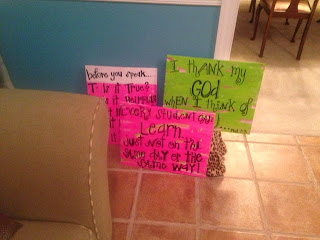 before you speak...
T is it True?
is it
I thank my
God
when I think of
every student can
Learn
just not on the
same day or the
same way!